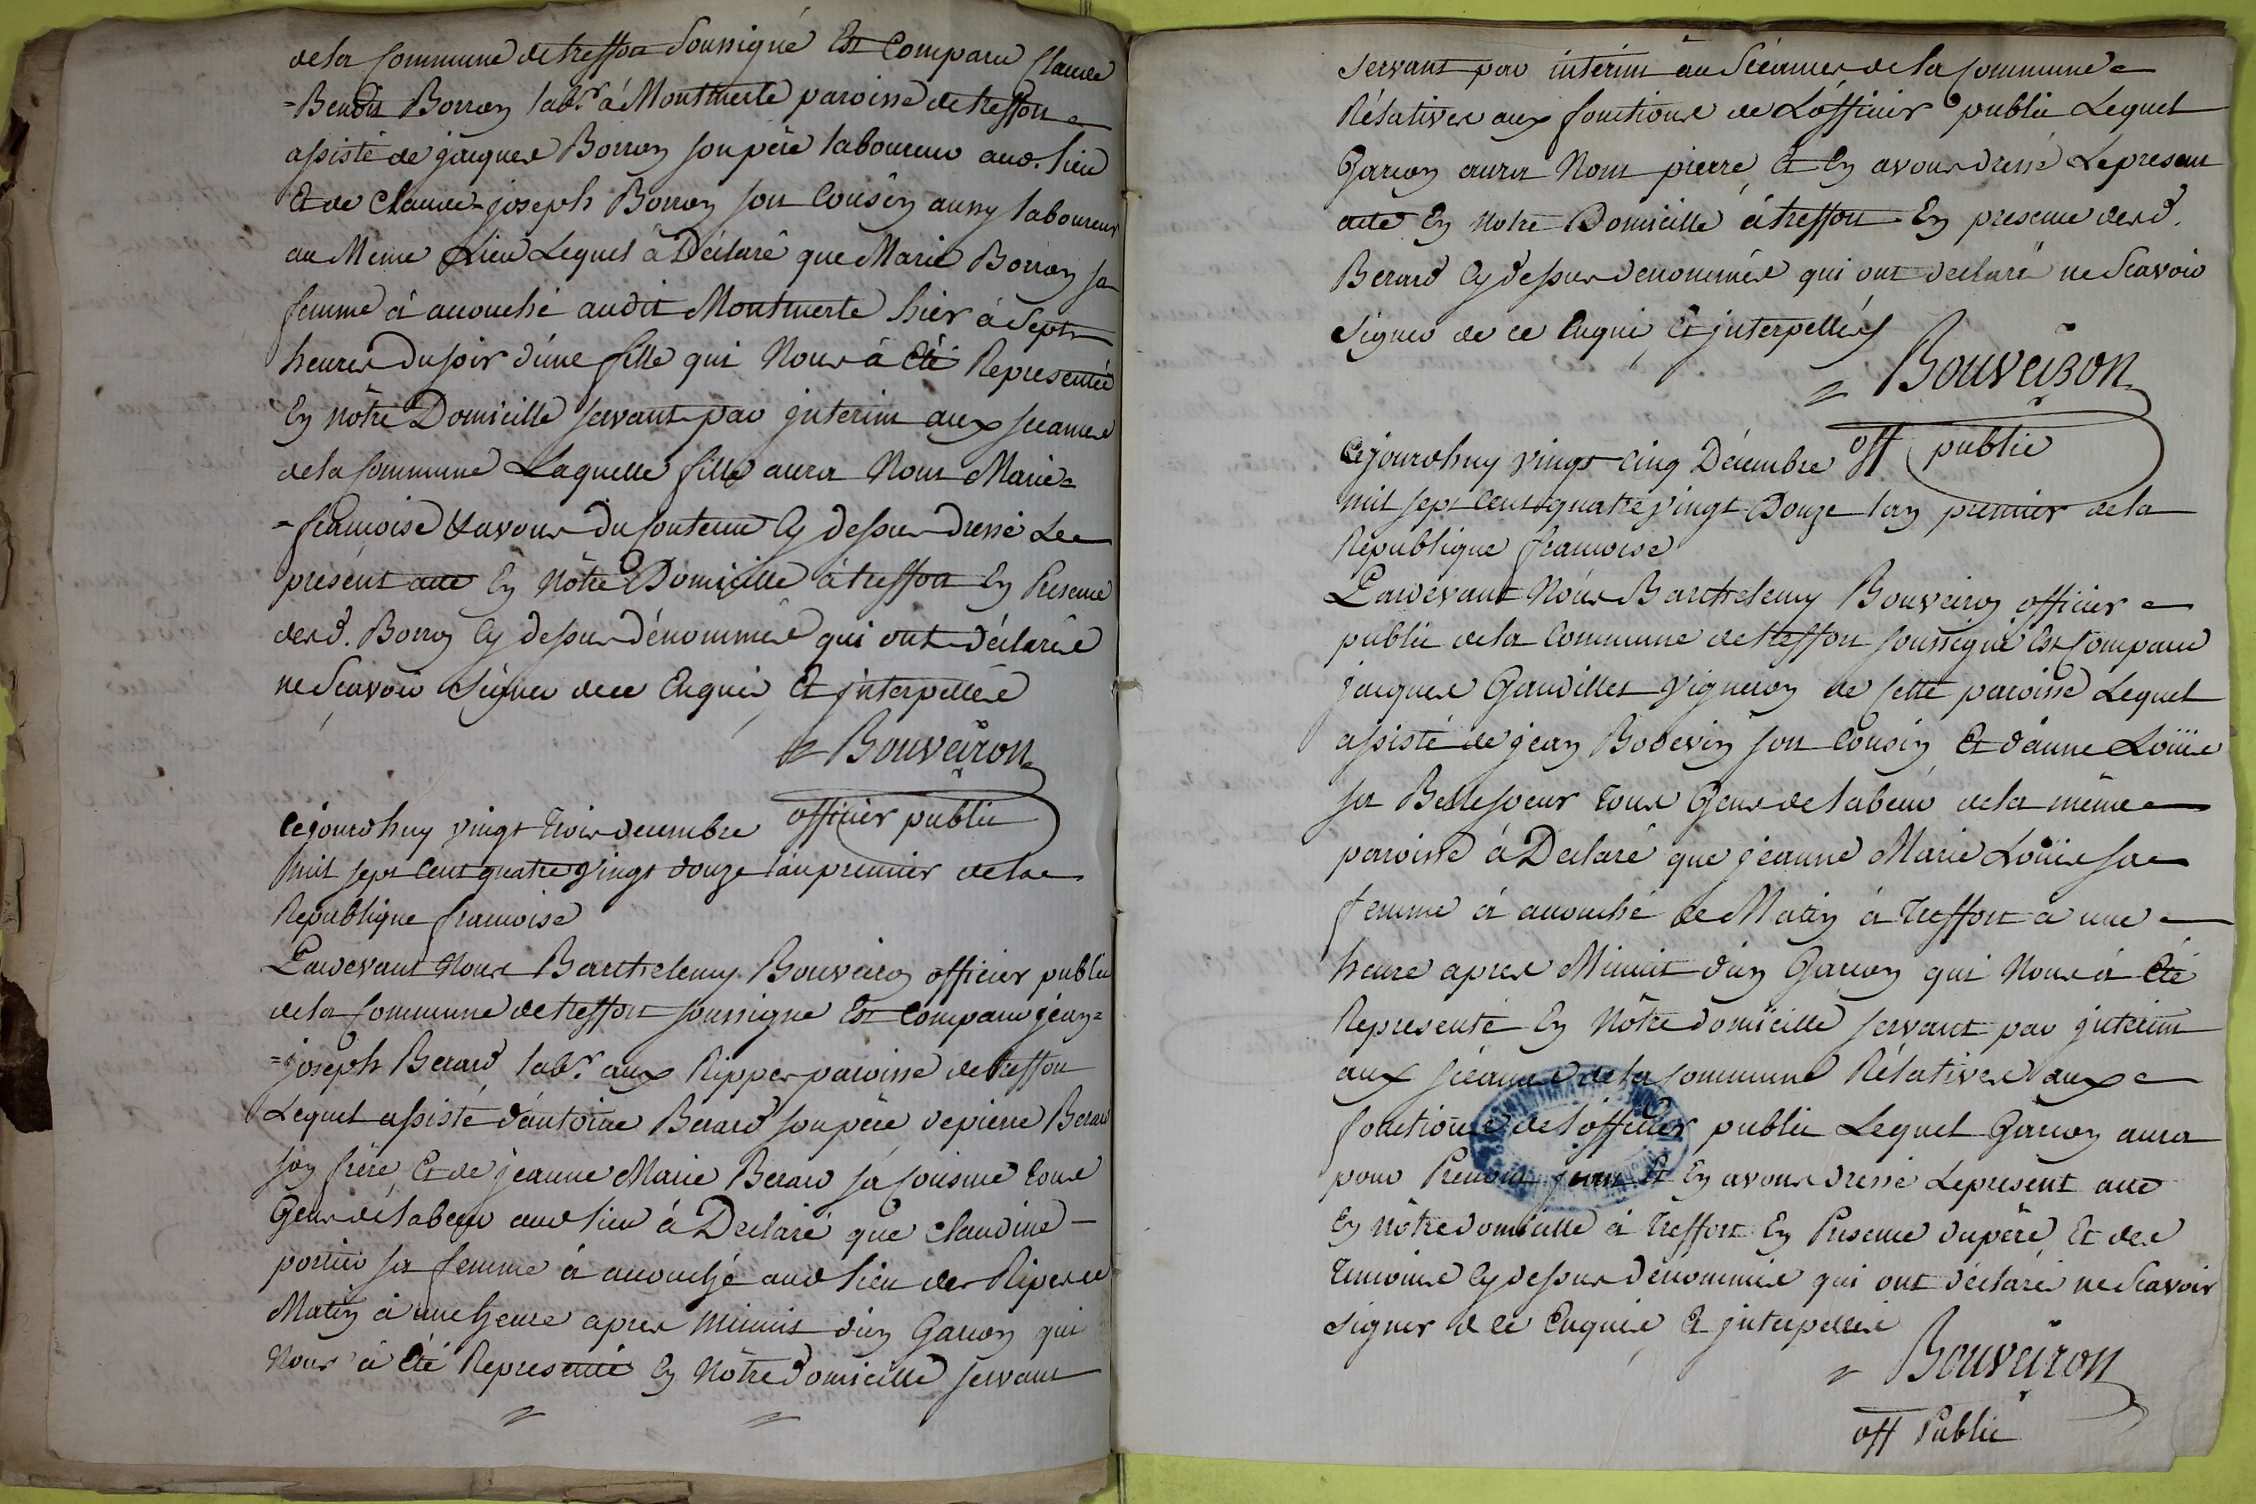 dela Commune de treffort soussigné Est Comparu Claude
=Benoit Borron lab.r á Montmerle paroisse de treffort
assisté de jacques Borron son pére laboureur aud. lieu
Et de Claude-joseph Borron son Cousin aussy laboureur
au Meme Lieu Lequel á Déclaré que Marie Borron sa
femme á acouché audit Montmerle hier á Sept
heures du soir d'une fille qui Nous á Eté Representée
En nôtre Domicille servant par jnterim aux sceances
dela Commune Laquelle fille aura Nom Marie=
=francoise Et avons du contenu Cy dessus dressé Le
présent acte En Nôtre Domicille á treffort En Presence
des d. Borron Cy dessus dénommés qui ont déclarés
ne Scavoir Signer de ce Enquis Et jnterpellés
Bouveiron
officier public
Cejourdhuy vingt trois decembre
mil sept Cent quatre vingt douze l'an premier dela
République francoise
Pardevant Nous Barthelemy Bouveiron officier public
dela Commune de treffort soussigné Est Comparu jean=
=joseph Berard lab.r aux Rippes paroisse de treffort
Lequel assisté d'antoine Berard son pére de pierre Berard
son frére, Et de jeanne Marie Berard sa Cousine tous
Gens de labeur aud lieu á Declaré que Claudine
portier sa femme á acouché aud lieu des Ripes ce
Matin á une heure apres minuit d'un Garcon qui
Nous á Eté Representé En Nôtre domicille servant
servant par intérim au Scéances dela Commune
Rélatives aux fonctions de L'officier public Lequel
Garcon aura Nom pierre, Et En avons dressé Le present
acte En Notre Domicille á treffort En presence des d.
Berard Cy dessus denommés qui ont declaré ne Scavoir
Signer de ce Enquis Et jnterpellés
Bouveiron
off public
Cejourdhuy vingt cinq Décembre
mil sept Cent quatre vingt Douze lan premier dela
République francoise
Pardevant Nous Barthelemy Bouveiron officier
public dela Commune de treffort soussigné Est Comparu
jacques Gaudillet Vigneron de Cette paroisse Lequel
assisté de jean Bodevin son Cousin Et d'anne Loüie
sa Bellesoeur tous Gens de labeur dela méme
paroisse á Declaré que jeanne Marie Loüis sa
femme á acouché ce Matin á treffort a une
heure apres Minuit d'un Garcon qui Nous á Eté
Representé En Nôtre domicille servant par jnterim
aux sceances dela Commune Rélatives aux
fonctions de l'officier public Lequel Garcon aura
pour Prénom Et En avons dressé Le present acte
En nôtre domicille á treffort En Presence du pére, Et des
témoins Cy dessus dénommés qui ont déclaré ne Scavoir
signer de ce Enquis Et jnterpellés
Bouveiron
off Public